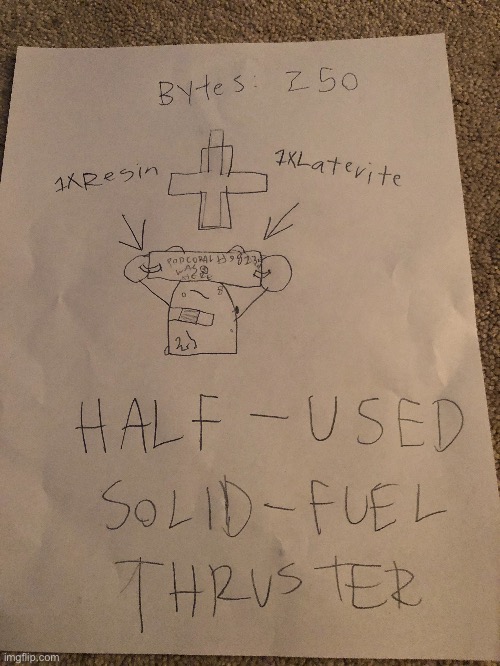 Bytes: 250
1XResin
1XLaterite
WAS
HERE
HALF-USED
SOLID-FUEL
THRUSTER
imgflip.com